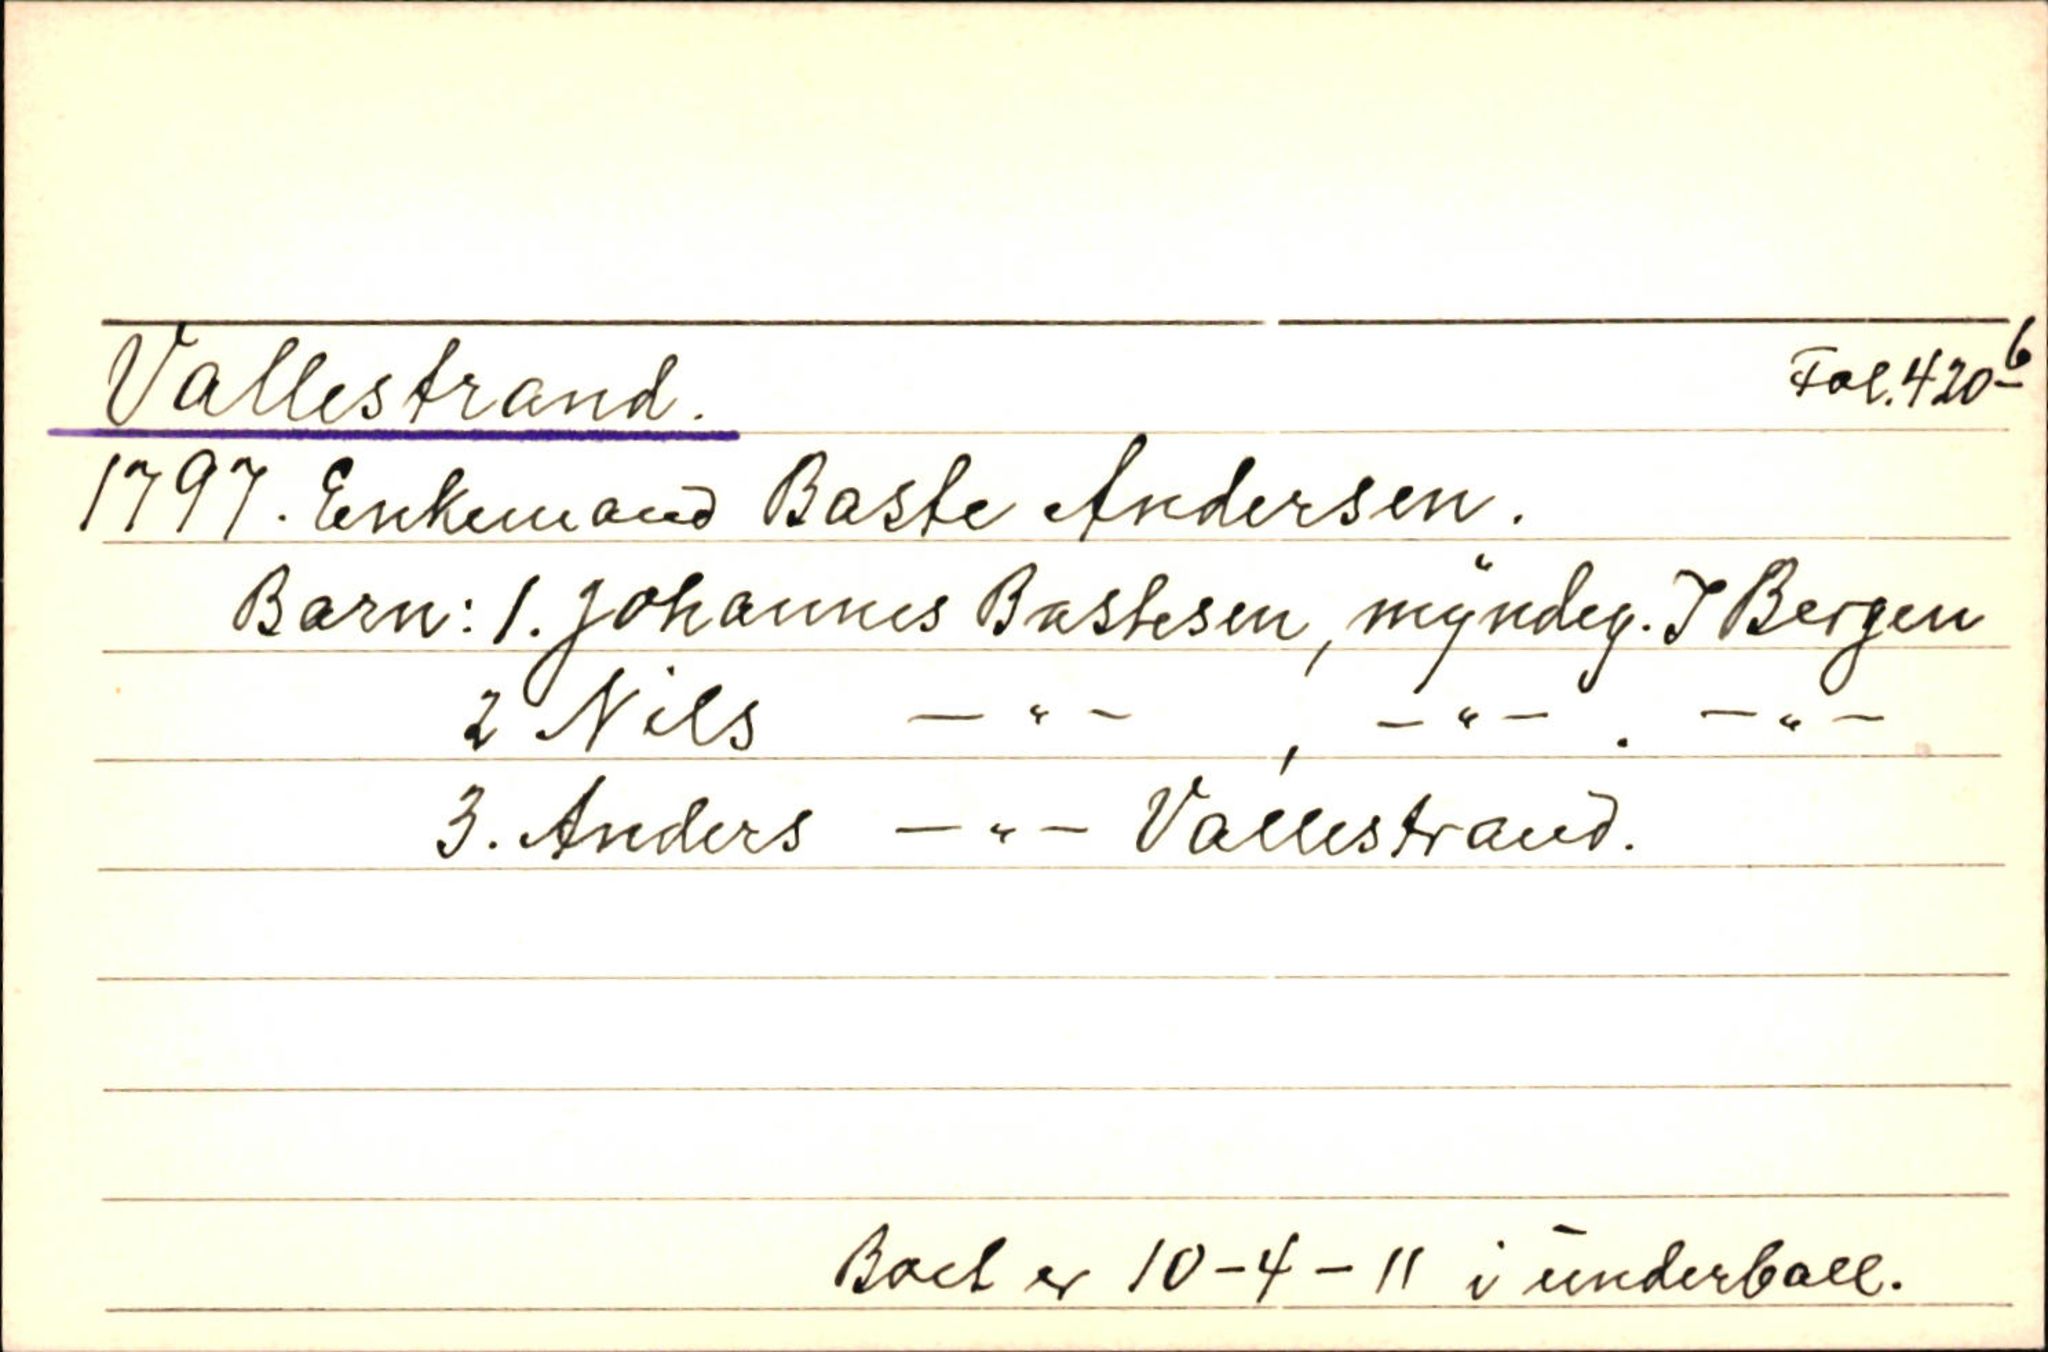 Vallestrand. Fol. 420 b
1797. Enkemand Baste Andersen.
Barn: 1. Johannes Bastesen, myndig. I Bergen
2 Nils — " — , — " — . — " —
3. Anders — " — Vallestrand.
Boet er 10-4-11 i underball.